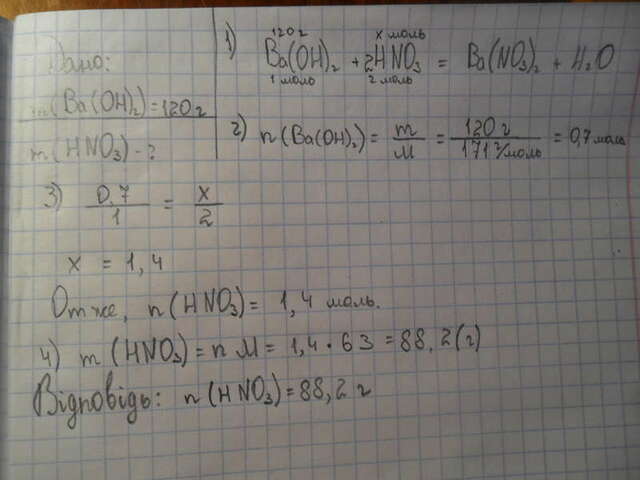 Дано:
m(Ba(OH)₂)=120 г
m(HNO₃) - ?
1) 120 г x моль
Ba(OH)₂ + 2HNO₃ = Ba(NO₃)₂ + H₂O
1 моль 2 моль
2) n(Ba(OH)₂) = m/M = 120 г/171 г/моль = 0,7 моль
3) 0,7/1 = x/2
x = 1,4
Отже, n(HNO₃) = 1,4 моль.
4) m(HNO₃) = n M = 1,4 · 63 = 88,2(г)
Відповідь: n(HNO₃) = 88,2 г